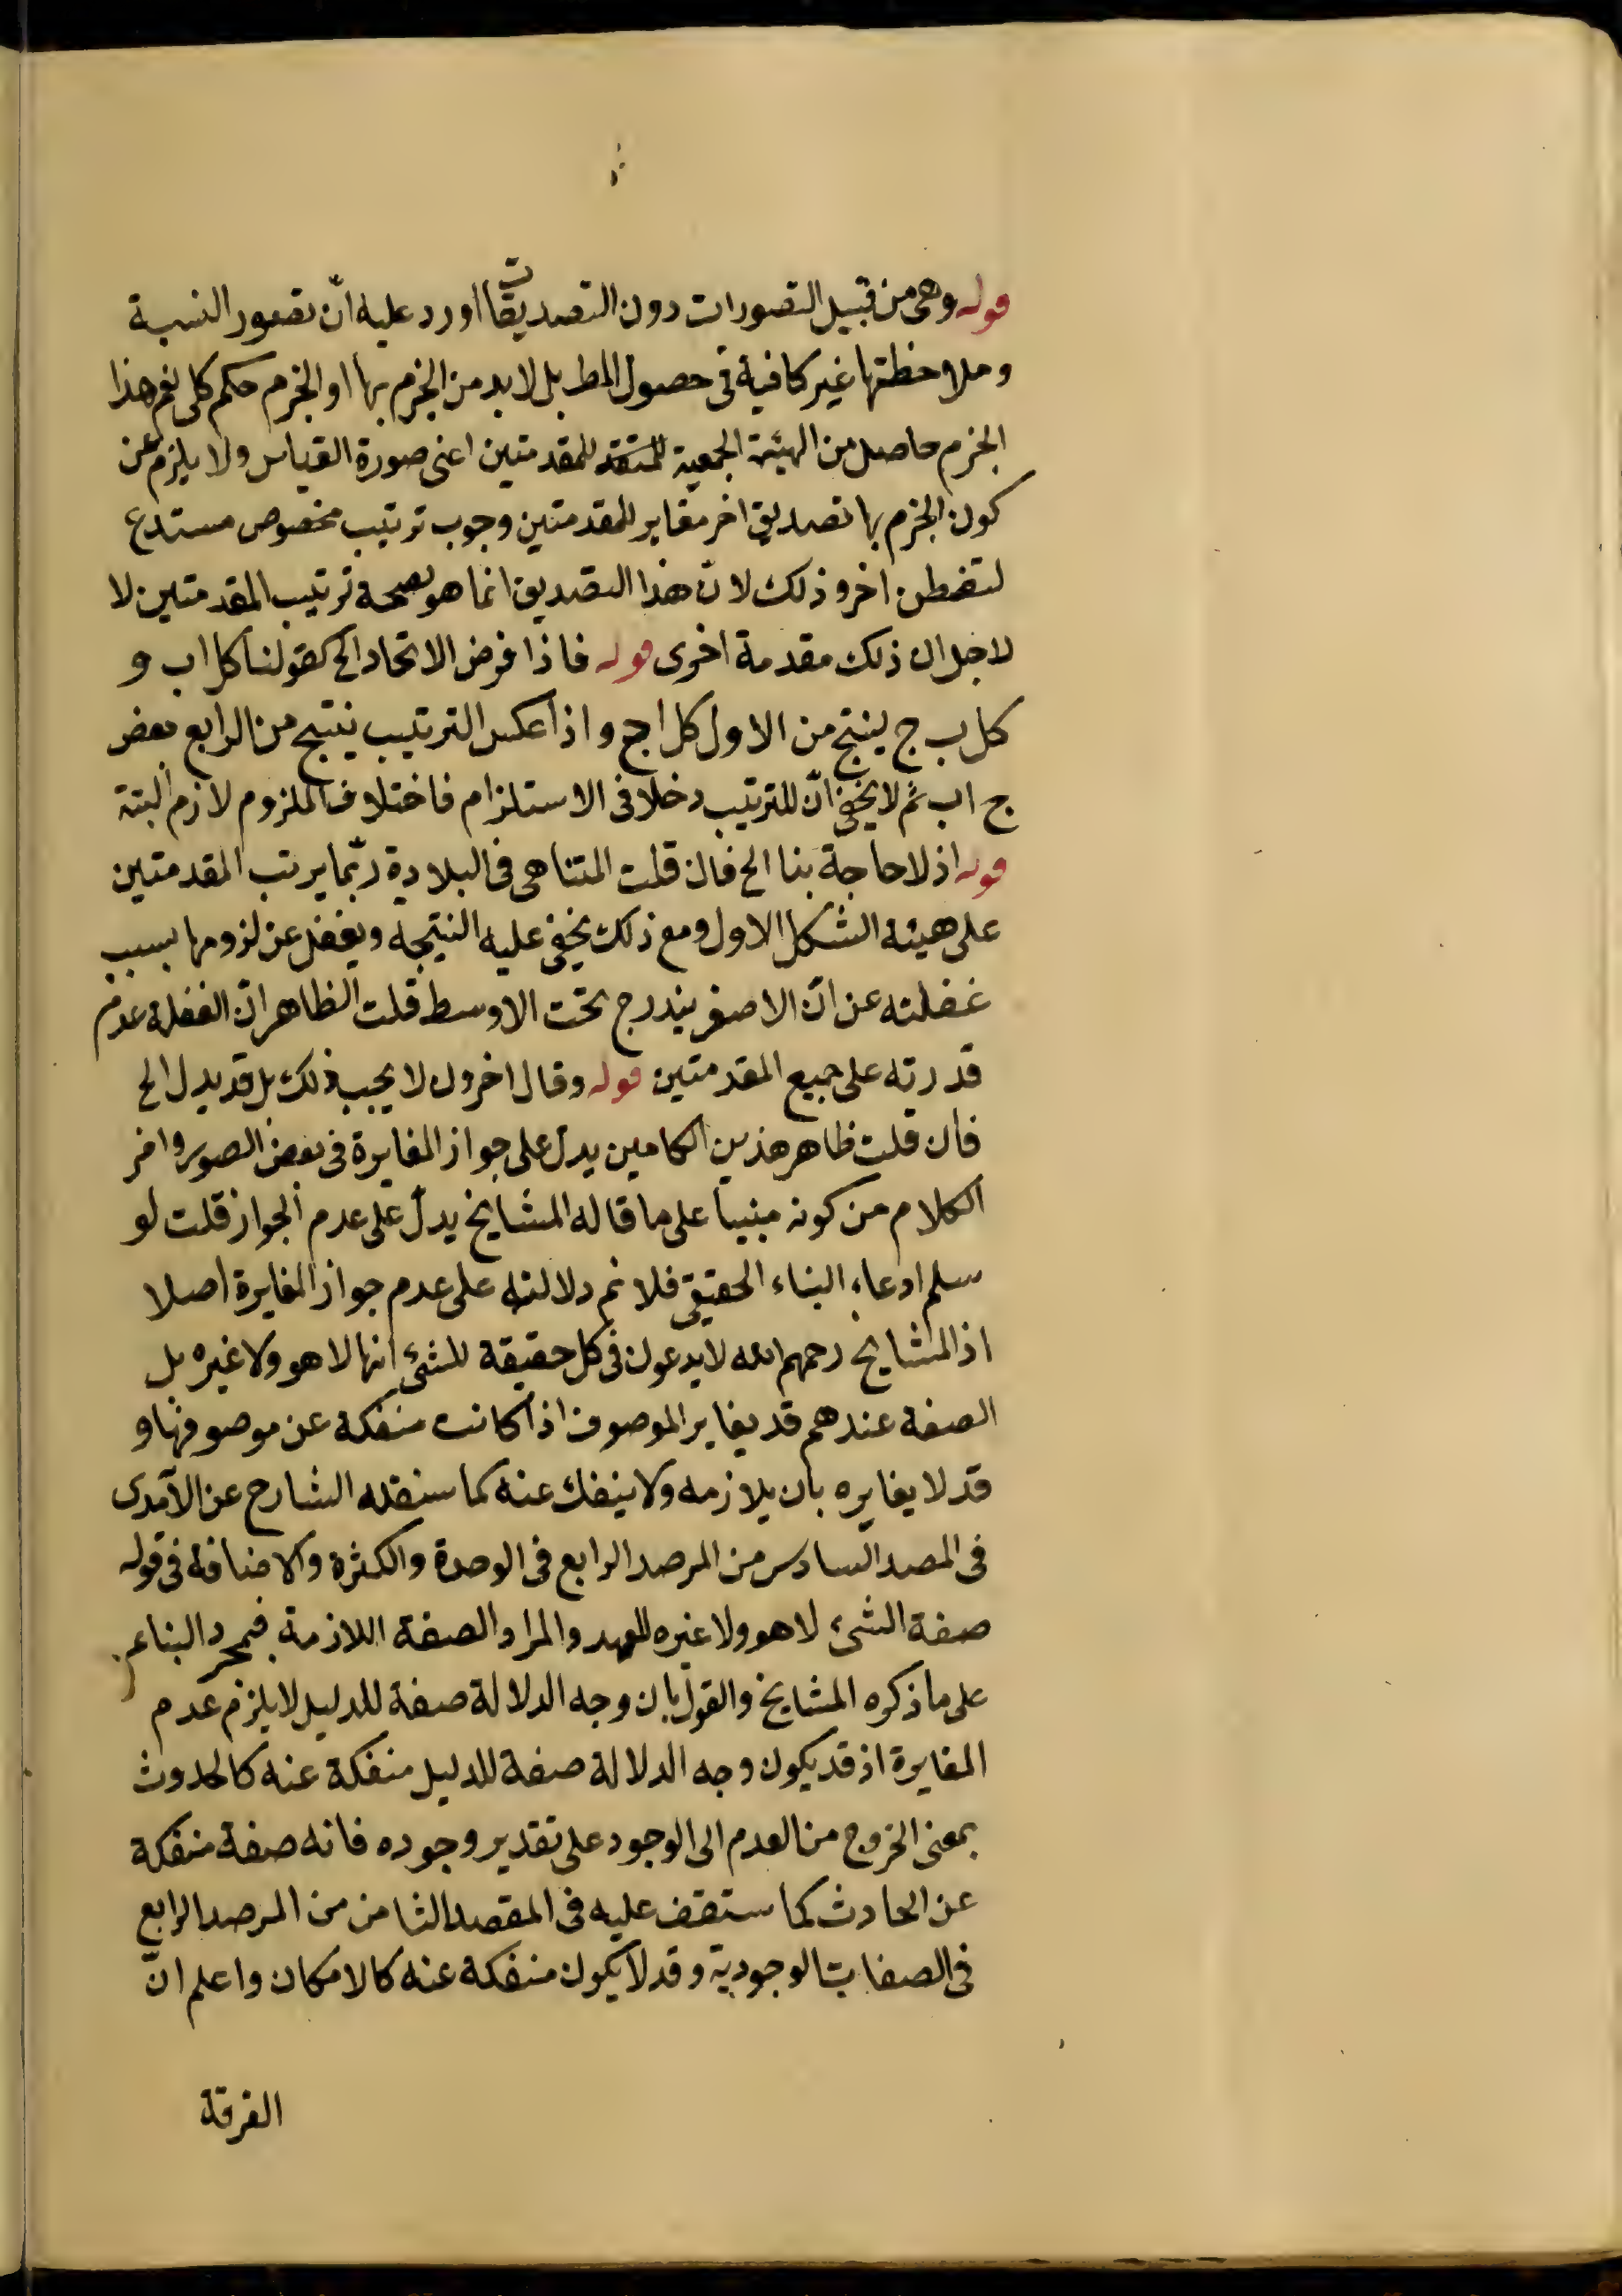 قوله وهى من قبيل التصورات دون التصديقات اورد عليه انّ تصور النسبة
وملاحظتها غير كافية فى حصول المط بل لابد من الجزم بها او الجزم حكم كلى نعم هذا
الجزم حاصل من الهيئة الجمعية للمقدمتين اعنى صورة القياس ولا يلزم من
كون الجزم بها تصديق اخر مغاير للمقدمتين وجوب ترتيب مخصوص مستدع
لتفطن اخر وذلك لانّ هذا التصديق انما هو بصحة ترتيب المقدمتين لا
لاجل ان ذلك مقدمة اخرى قوله فاذا فرض الاتحاد الخ كقولنا كل اب و
كل ب ج ينتج من الاول كل اج و اذا عكس الترتيب ينتج من الرابع بعض
ج اب ثم لا يخفى انّ للترتيب دخلا فى الاستلزام فاختلاف الملزوم لازم البتة
قوله اذ لا حاجة بنا الخ فان قلت المتناهى فى البلادة ربّما يرتب المقدمتين
على هيئة الشكل الاول ومع ذلك يخفى عليه النتيجة ويغفل عن لزومها بسبب
غفلته عن انّ الاصغر يندرج تحت الاوسط قلت الظاهر انّ الغفلة عدم
قدرته على جميع المقدمتين قوله وقال اخرون لا يجب ذلك بل قد يدل الخ
فان قلت ظاهر هذين الكلامين يدل على جواز المغايرة فى بعض الصور واخر
الكلام من كونه مبنيا على ما قاله المشايخ يدلّ على عدم الجواز قلت لو
سلم ادعاء البناء الحقيقى فلا نم دلالته على عدم جواز المغايرة اصلا
اذ المشايخ رحمهم الله لا يدعون فى كل حقيقة للشئ انها لا هو ولا غيره بل
الصفة عندهم قد يغاير الموصوف اذا كانت منفكة عن موصوفها و
قد لا يغايره بان يلازمه ولا ينفك عنه كما سنقله الشارح عن الآمدى
فى المصد السادس من المرصد الرابع فى الوحدة والكثرة والاضافة فى قوله
صفة الشئ لا هو ولا غيره للعهد والمراد الصفة اللازمة فبمجرد البناء
على ما ذكره المشايخ والقول بان وجه الدلالة صفة للدليل لا يلزم عدم
المغايرة اذ قد يكون وجه الدلالة صفة للدليل منفكة عنه كالحدوث
بمعنى الخروج من العدم الى الوجود على تقدير وجوده فانه صفة منفكة
عن الحادث كما ستقف عليه فى المقصد الثامن من المرصد الرابع
فى الصفات الوجودية وقد لا يكون منفكة عنه كالامكان واعلم انّ
الفرقة